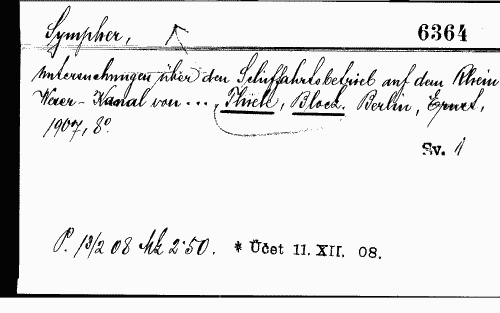 Sympher, 6364
Untersuchungen über den Schiffahrtsbetrieb auf dem Rhein
Weser-Kanal von ..., Thiele, Block. Berlin, Ernst,
1907, 8°.
Sv. 1
P. 13/2 08 Mk 2·50. * Účet 11. XII. 08.